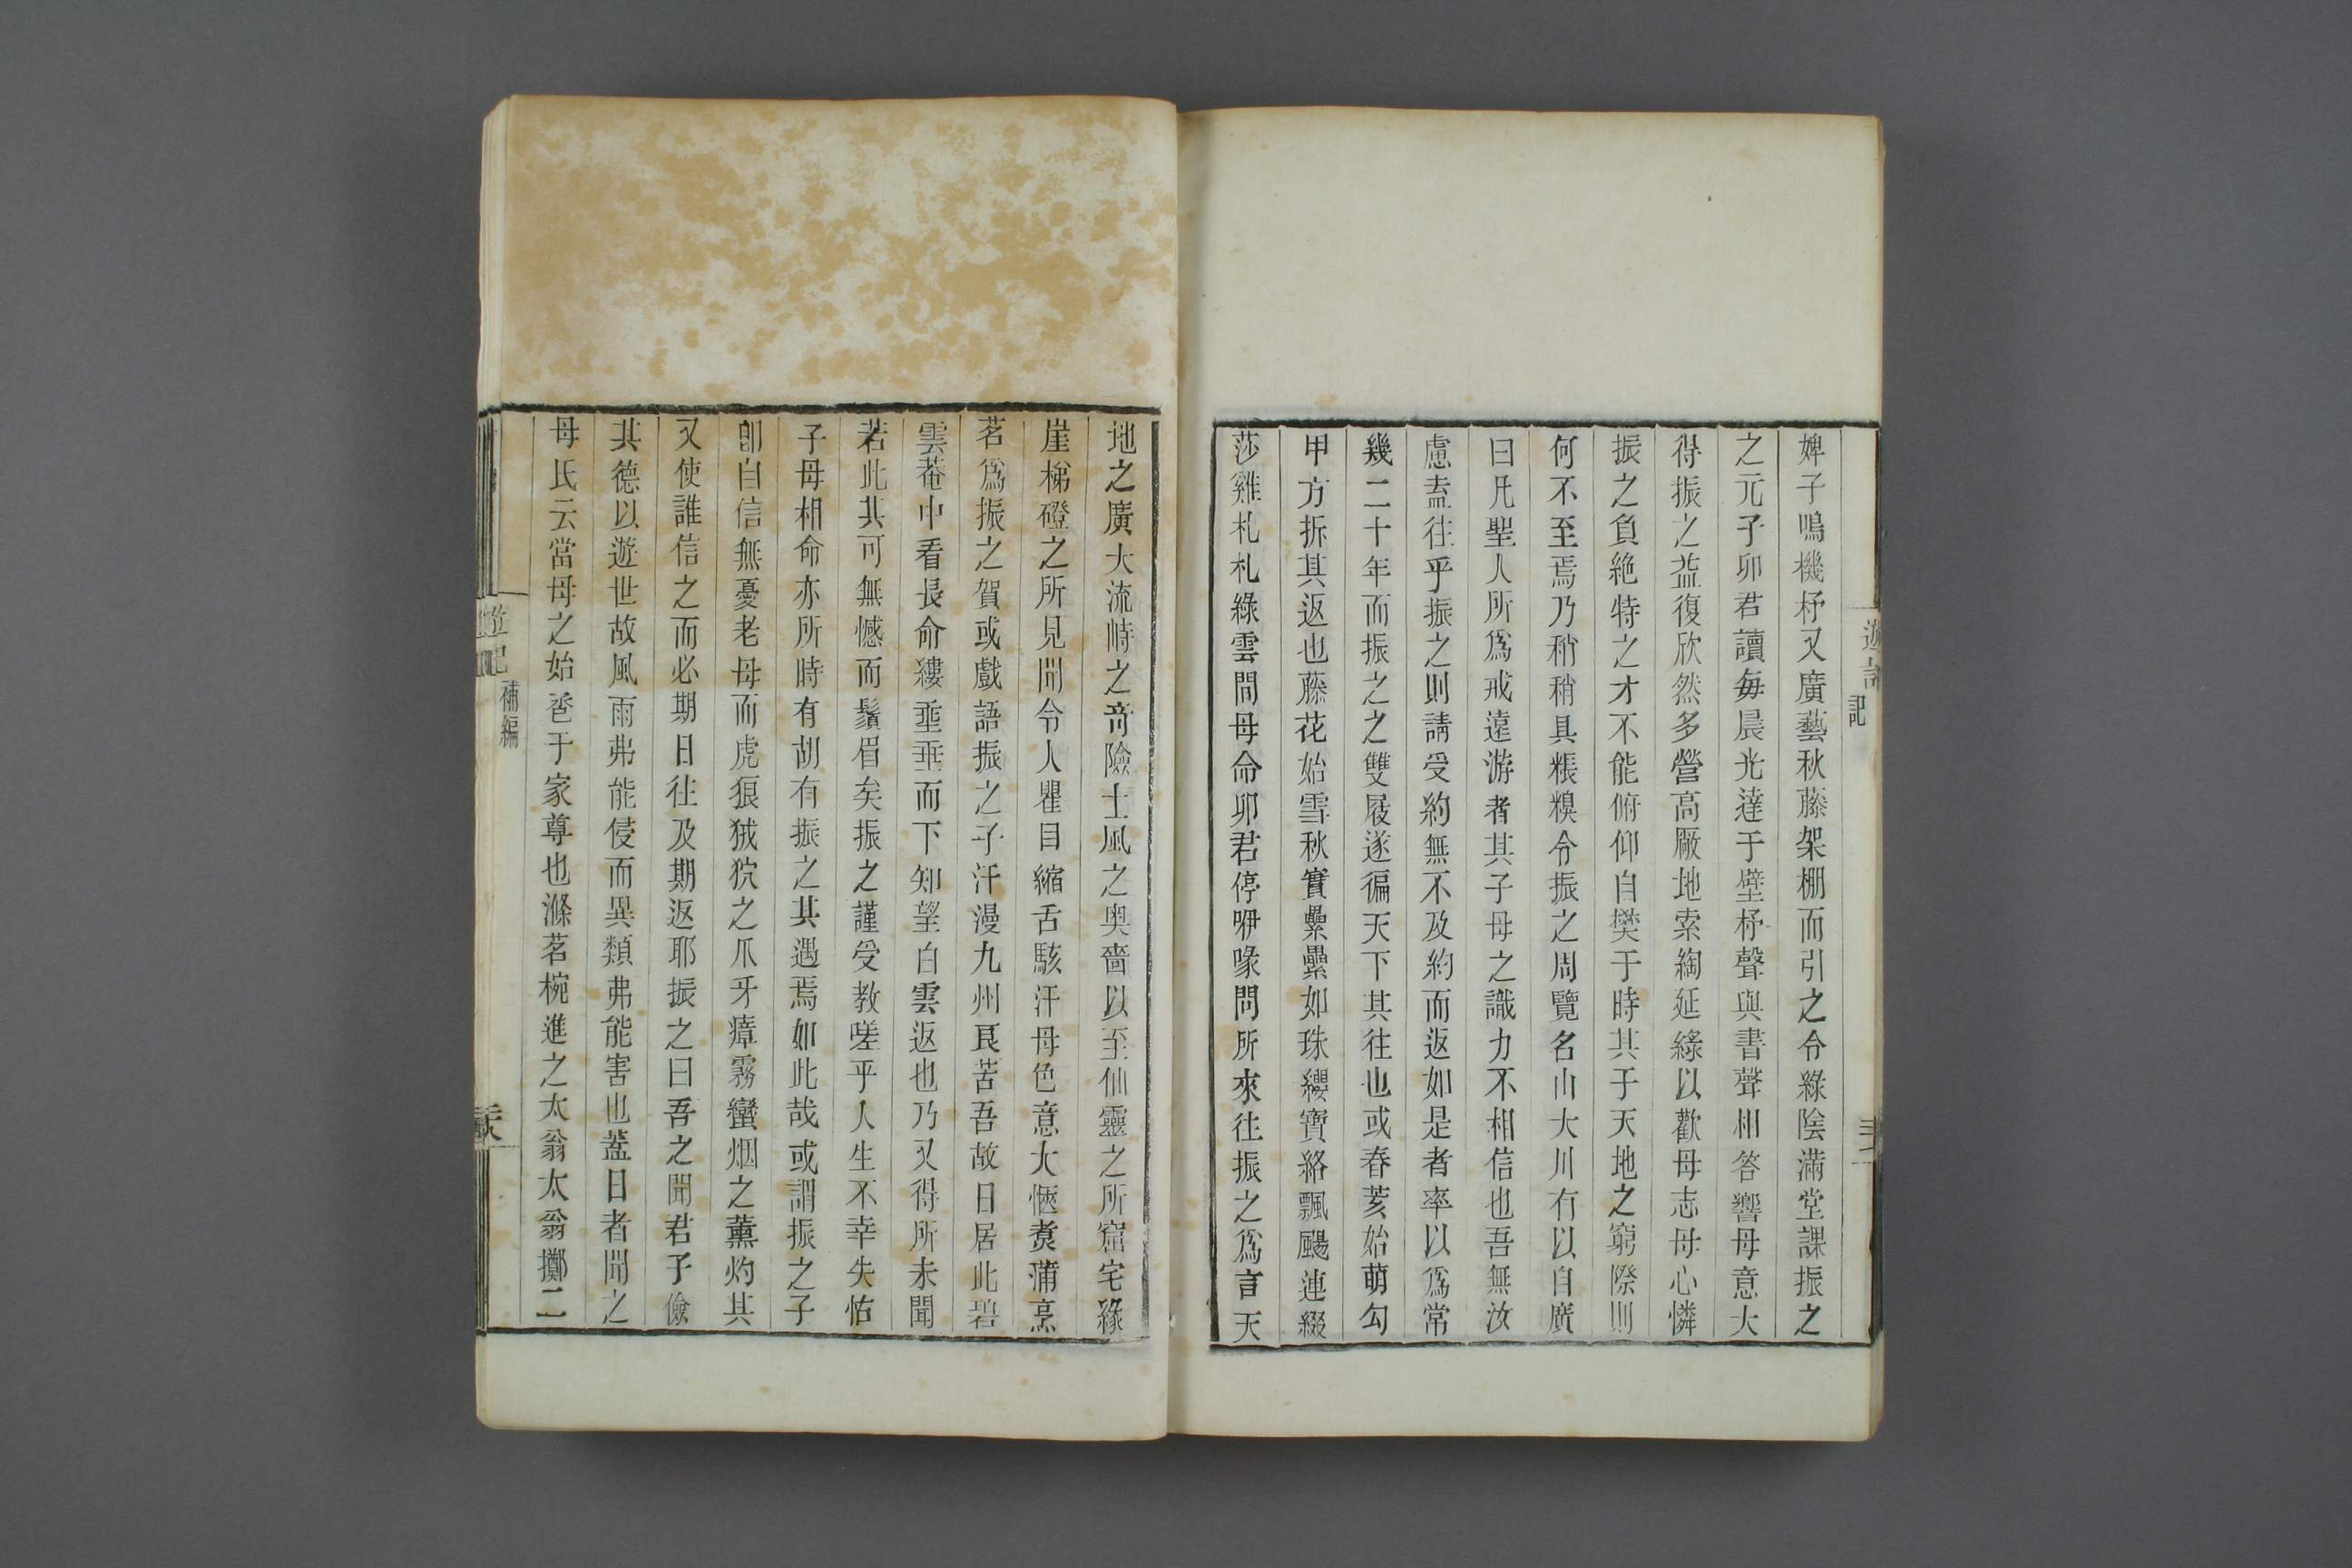 婢子鳴機杼又廣藝秋藤架棚而引之令綠陰滿堂課振之
之元子卯君讀每晨光達于壁杼聲與書聲相答響母意大
得振之益復欣然多營高厰地索綯延緣以歡母志母心憐
振之負絶特之才不能俯仰自樊于時其于天地之窮際則
何不至焉乃稍稍具粻糗令振之周覽名山大川有以自廣
曰凡聖人所爲戒遠游者其子母之識力不相信也吾無汝
慮盍往乎振之則請受約無不及約而返如是者率以爲常
幾二十年而振之之雙屐遂徧天下其往也或春荄始萌勾
甲方拆其返也藤花始雪秋實纍纍如珠纓寶絡飄颺連綴
莎雞札札綠雲間母命卯君停咿喙問所來往振之爲言天
地之廣大流峙之奇險土風之奥嗇以至仙靈之所窟宅緣
崖梯磴之所見聞令人瞿目縮舌駭汗母色意大愜煑蒲烹
茗爲振之賀或戲語振之子汗漫九州良苦吾故日居此碧
雲菴中看長命縷垂垂而下知望白雲返也乃又得所未聞
若此其可無憾而鬚眉矣振之謹受教嗟乎人生不幸失怙
子母相命亦所時有胡有振之之其遇焉如此哉或謂振之子
卽自信無憂老母而虎狼狨狖之爪牙瘴霧蠻烟之薰灼其
又使誰信之而必期日往及期返耶振之曰吾之聞君子儉
其德以遊世故風雨弗能侵而異類弗能害也蓋日者聞之
母氏云當母之始巹于家尊也滌茗椀進之太翁太翁擲二
補編